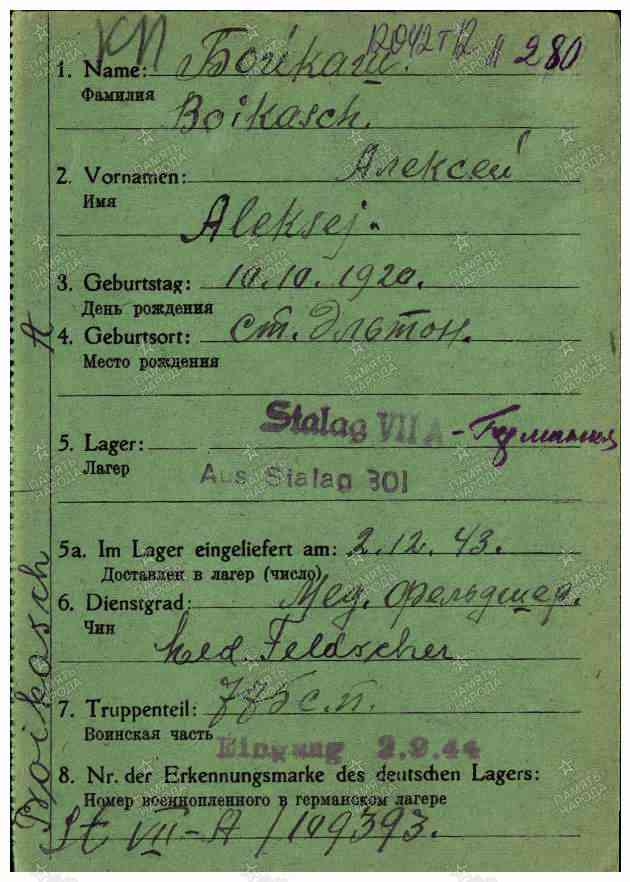 КП 12042т12 л 280
1. Name: Бойкаш.
Фамилия
Boikasch.
2. Vornamen: Алексей
Имя
Aleksej.
3. Geburtstag: 10.10.1920.
День рождения
4. Geburtsort: ст. Эльтон.
Место рождения
Stalag VII A - Германия
5. Lager:
Лагер
Aus Stalag 301
5a. Im Lager eingeliefert am: 2.12.43.
Доставлен в лагер (число)
6. Dienstgrad: Мед. фельдшер.
Чин
Med. Feldscher
7. Truppenteil: с.п.
Воинская часть
Eingang 2.9.44
8. Nr. der Erkennungsmarke des deutschen Lagers:
Номер военнопленного в германском лагере
St VII-A / 109393.
Boikasch A
ПАМЯТЬ НАРОДА